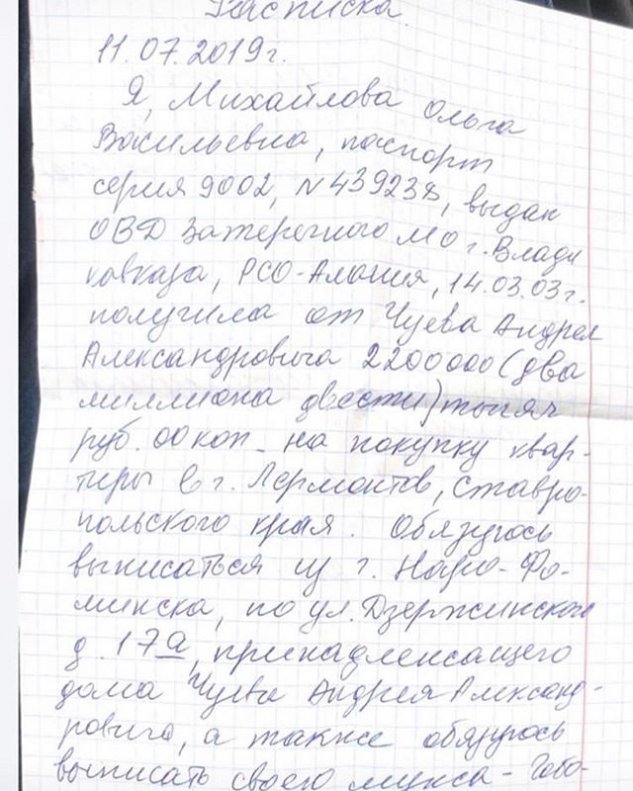 Расписка.
11.07.2019г.
Я, Михайлова Ольга
Васильевна, паспорт
серия 9002, N 439238, выдан
ОВД Затеречного МО г. Влади
кавказа, РСО-Алания, 14.03.03г.
получила от Чуева Андрея
Александровича 2200000 (два
миллиона двести) тысяч
руб. 00 коп. на покупку квар-
тиры в г. Лермонтов, Ставро-
польского края. Обязуюсь
выписаться из г. Наро-Фо-
минска, по ул. Дзержинского
д. 17а, принадлежащего
дома Чуева Андрея Александ-
ровича, а также обязуюсь
выписать своего мужа -